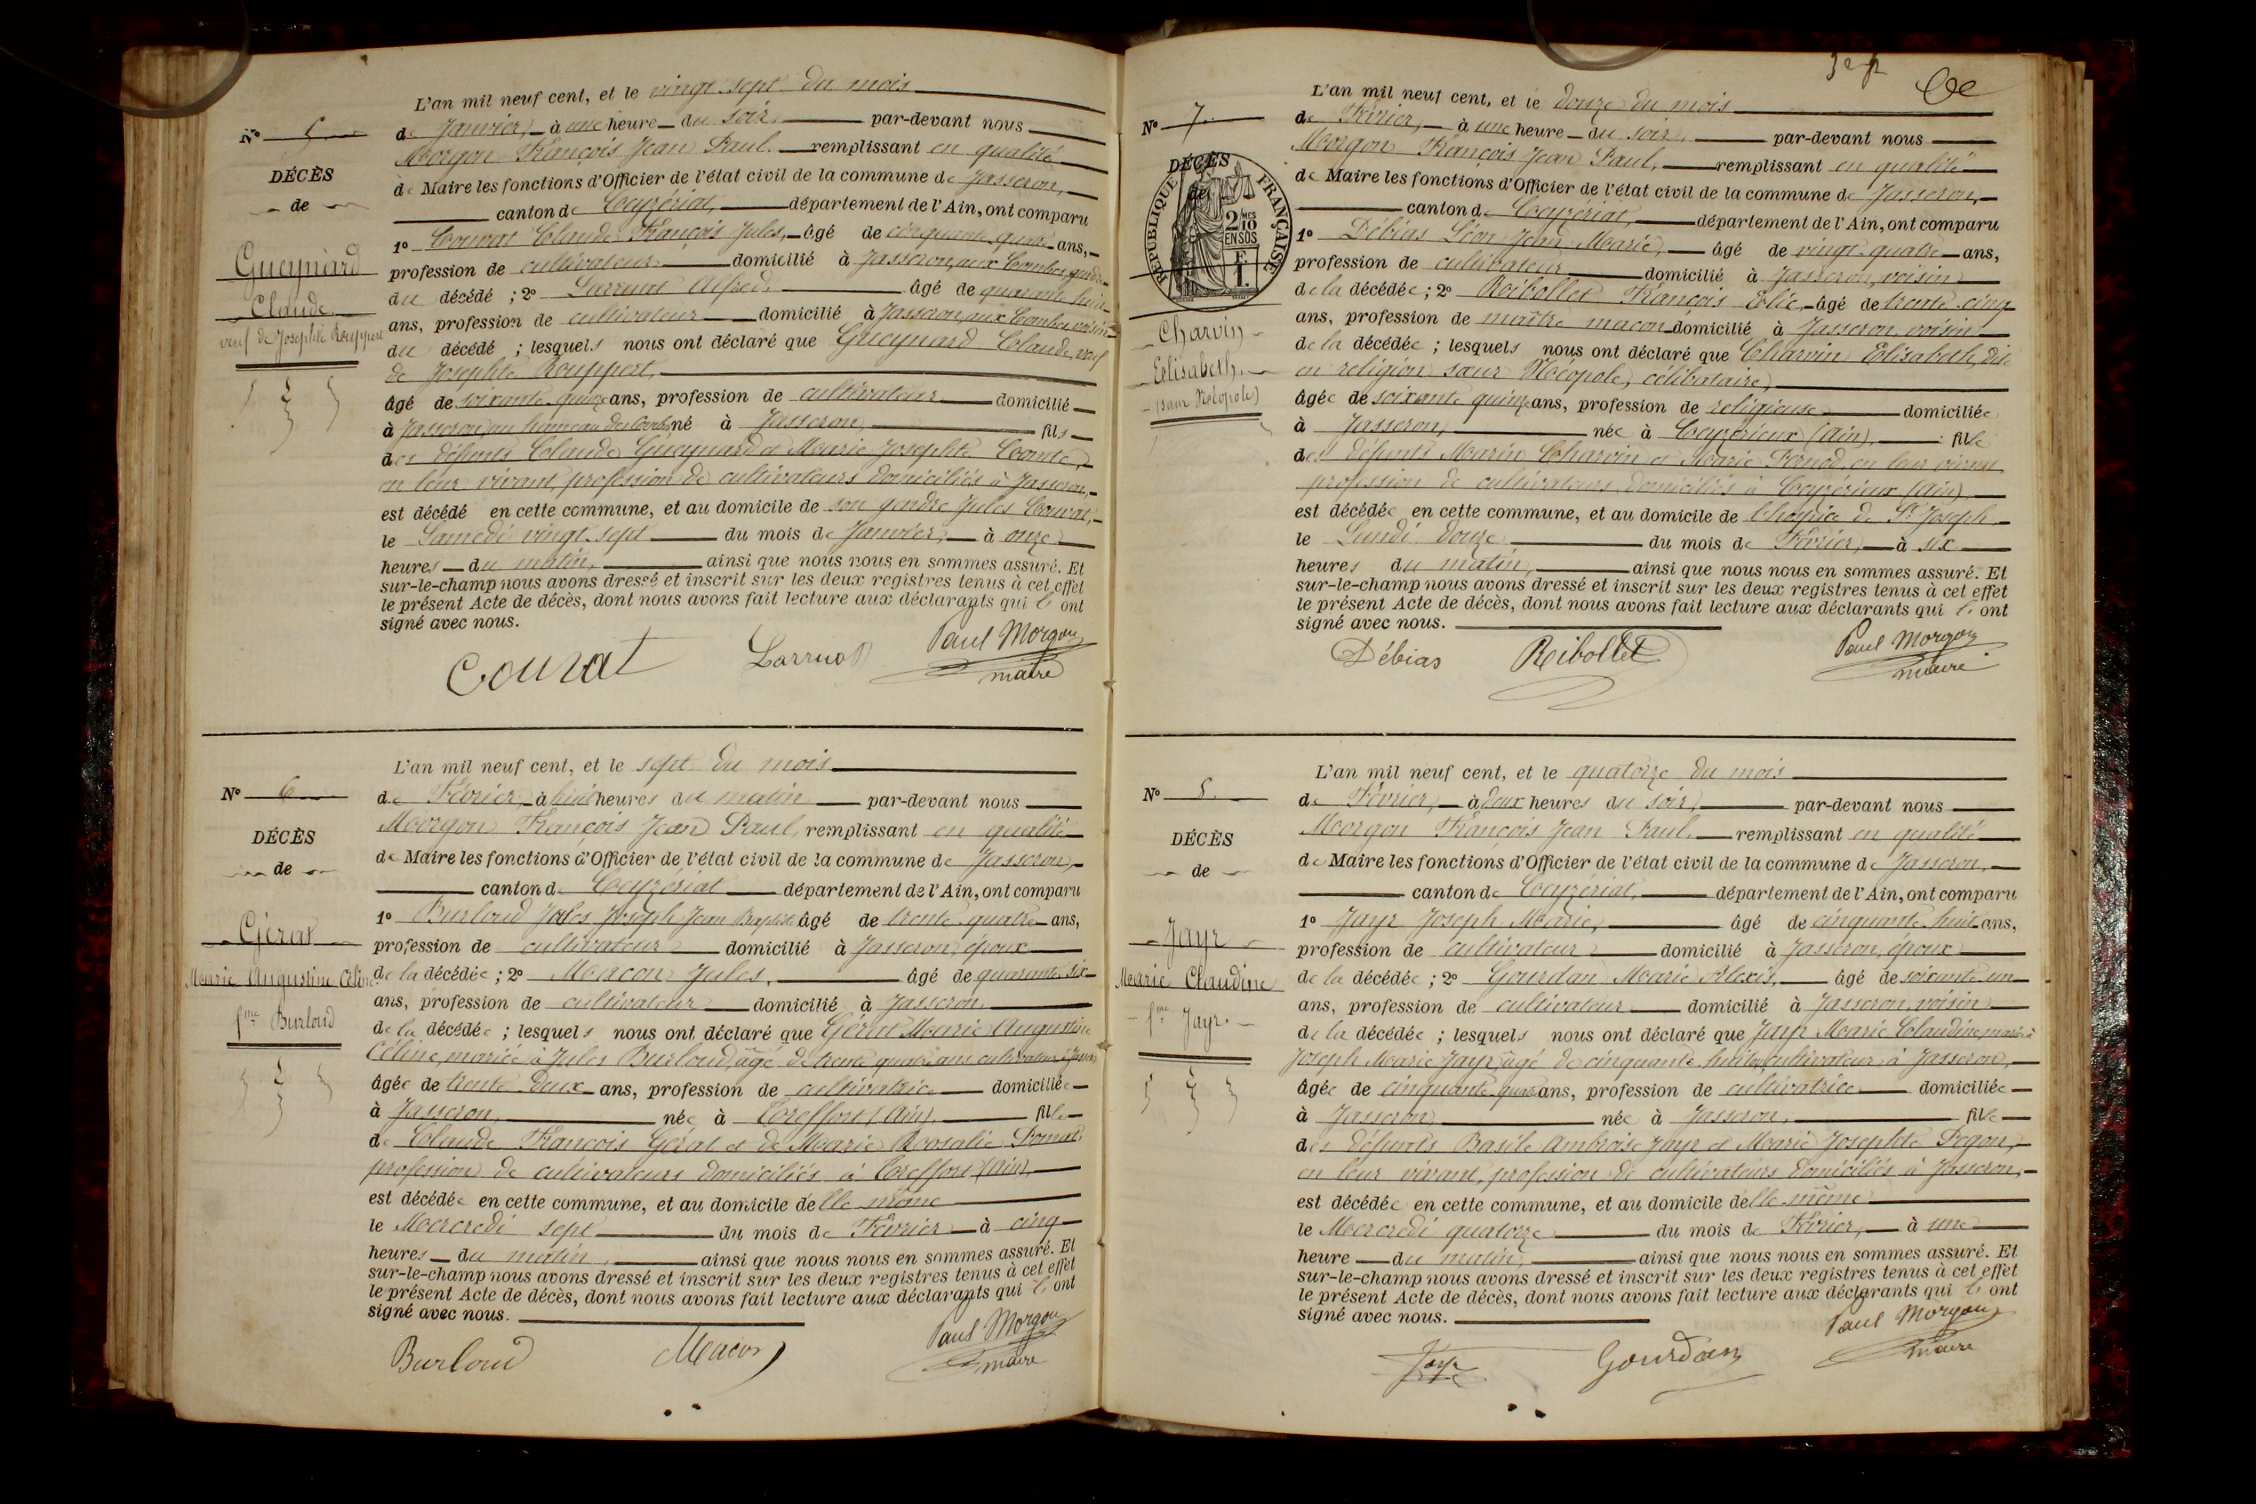 N° 5
DÉCÈS
de
Gueynard
Claude
veuf de Josephte Rouppert
L'an mil neuf cent, et le vingt-sept du mois
de Janvier, à une heure du soir, par-devant nous
Morgon François Jean Paul, remplissant en qualité
de Maire les fonctions d'Officier de l'état civil de la commune de Jasseron,
canton de Ceyzériat, département de l'Ain, ont comparu
1° Couvat Claude François Jules, âgé de cinquante quatre ans,
profession de cultivateur domicilié à Jasseron, aux Combes, gendre
du décédé ; 2° Larruat Alfred, âgé de quarante huit
ans, profession de cultivateur domicilié à Jasseron, aux Combes, voisin
du décédé ; lesquels nous ont déclaré que Gueynard Claude, veuf
de Josephte Rouppert,
âgé de soixante quinze ans, profession de cultivateur domicilié
à Jasseron, au hameau des Combes né à Jasseron, fils
des défunts Claude Gueynard et Marie Josephte Comte,
en leur vivant, profession de cultivateurs domiciliés à Jasseron,
est décédé en cette commune, et au domicile de son gendre Jules Couvat,
le Samedi vingt-sept du mois de Janvier, à onze
heures du matin, ainsi que nous nous en sommes assuré. Et
sur-le-champ nous avons dressé et inscrit sur les deux registres tenus à cet effet
le présent Acte de décès, dont nous avons fait lecture aux déclarants qui l'ont
signé avec nous.
Couvat Larruat Paul Morgon
maire
N° 6
DÉCÈS
de
Gérat
Marie Augustine Céline
fme Burloud
L'an mil neuf cent, et le sept du mois
de Février, à huit heures du matin par-devant nous
Morgon François Jean Paul, remplissant en qualité
de Maire les fonctions d'Officier de l'état civil de la commune de Jasseron,
canton de Ceyzériat département de l'Ain, ont comparu
1° Burloud Jules Joseph Jean Baptiste âgé de trente quatre ans,
profession de cultivateur domicilié à Jasseron, époux
de la décédée ; 2° Macon Jules, âgé de quarante six
ans, profession de cultivateur domicilié à Jasseron
de la décédée ; lesquels nous ont déclaré que Gérat Marie Augustine
Céline, mariée à Jules Burloud, âgé de trente quatre ans cultivateur à Jasseron
âgée de trente deux ans, profession de cultivatrice domiciliée
à Jasseron née à Treffort (Ain), fille
de Claude François Gérat et de Marie Rosalie
profession de cultivateurs domiciliés à Treffort (Ain),
est décédée en cette commune, et au domicile d'elle même
le Mercredi sept du mois de Février à cinq
heures du matin, ainsi que nous nous en sommes assuré. Et
sur-le-champ nous avons dressé et inscrit sur les deux registres tenus à cet effet
le présent Acte de décès, dont nous avons fait lecture aux déclarants qui l'ont
signé avec nous.
Burloud Macon Paul Morgon
maire
N° 7
DÉCÈS
de
RÉPUBLIQUE FRANÇAISE
2/10 MES EN SUS
F. 1.
Charvin
Elisabeth
(sœur Néopole)
L'an mil neuf cent, et le douze du mois
de Février, à une heure du soir, par-devant nous
Morgon François Jean Paul, remplissant en qualité
de Maire les fonctions d'Officier de l'état civil de la commune de Jasseron,
canton de Ceyzériat, département de l'Ain, ont comparu
1° Débias Léon Jean Marie, âgé de vingt-quatre ans,
profession de cultivateur domicilié à Jasseron, voisin
de la décédée ; 2° Ribollet François Elie, âgé de trente-cinq
ans, profession de maître maçon domicilié à Jasseron, voisin
de la décédée ; lesquels nous ont déclaré que Charvin Elisabeth, dite
en religion sœur Néopole, célibataire,
âgée de soixante quinze ans, profession de religieuse domiciliée
à Jasseron, née à Ceyzérieux (Ain), fille
des défunts Marin Charvin et Marie en leur vivant
profession de cultivateurs domiciliés à Ceyzérieux (Ain)
est décédée en cette commune, et au domicile de l'hospice de St Joseph
le Lundi douze du mois de Février, à six
heures du matin, ainsi que nous nous en sommes assuré. Et
sur-le-champ nous avons dressé et inscrit sur les deux registres tenus à cet effet
le présent Acte de décès, dont nous avons fait lecture aux déclarants qui l'ont
signé avec nous.
Débias Ribollet Paul Morgon
maire
N° 8
DÉCÈS
de
Jayr
Marie Claudine
fme Jayr
L'an mil neuf cent, et le quatorze du mois
de Février, à deux heures du soir, par-devant nous
Morgon François Jean Paul, remplissant en qualité
de Maire les fonctions d'Officier de l'état civil de la commune de Jasseron,
canton de Ceyzériat, département de l'Ain, ont comparu
1° Jayr Joseph Marie, âgé de cinquante huit ans,
profession de cultivateur domicilié à Jasseron, époux
de la décédée ; 2° Gourdan Marie Alexis, âgé de soixante un
ans, profession de cultivateur domicilié à Jasseron, voisin
de la décédée ; lesquels nous ont déclaré que Jayr Marie Claudine, mariée à
Joseph Marie Jayr, âgé de cinquante huit ans, cultivateur à Jasseron,
âgée de cinquante quatre ans, profession de cultivatrice domiciliée
à Jasseron née à Jasseron, fille
des défunts Basile Ambroise Jayr et Marie Josephte
en leur vivant, profession de cultivateurs domiciliés à Jasseron,
est décédée en cette commune, et au domicile d'elle même
le Mercredi quatorze du mois de Février, à une
heure du matin, ainsi que nous nous en sommes assuré. Et
sur-le-champ nous avons dressé et inscrit sur les deux registres tenus à cet effet
le présent Acte de décès, dont nous avons fait lecture aux déclarants qui l'ont
signé avec nous.
Jayr Gourdan Paul Morgon
maire